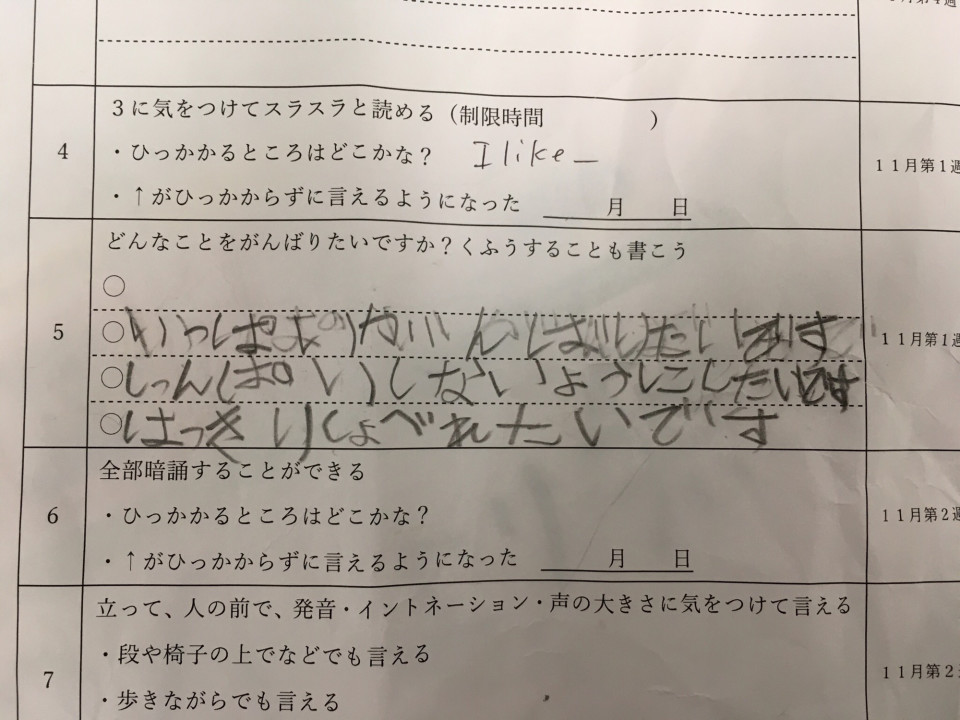 4
3に気をつけてスラスラと読める（制限時間　　　　　）
・ひっかかるところはどこかな？　I like _
・↑がひっかからずに言えるようになった　＿＿＿月＿＿日
11月第1週
5
どんなことをがんばりたいですか？くふうすることも書こう
○
○いっぱ がんばりたいです
○しっんぱいしないようにしたいです
○はっきりしょべれたいです
11月第1週
6
全部暗誦することができる
・ひっかかるところはどこかな？
・↑がひっかからずに言えるようになった　＿＿＿月＿＿日
11月第2週
7
立って、人の前で、発音・イントネーション・声の大きさに気をつけて言える
・段や椅子の上でなどでも言える
・歩きながらでも言える
11月第2